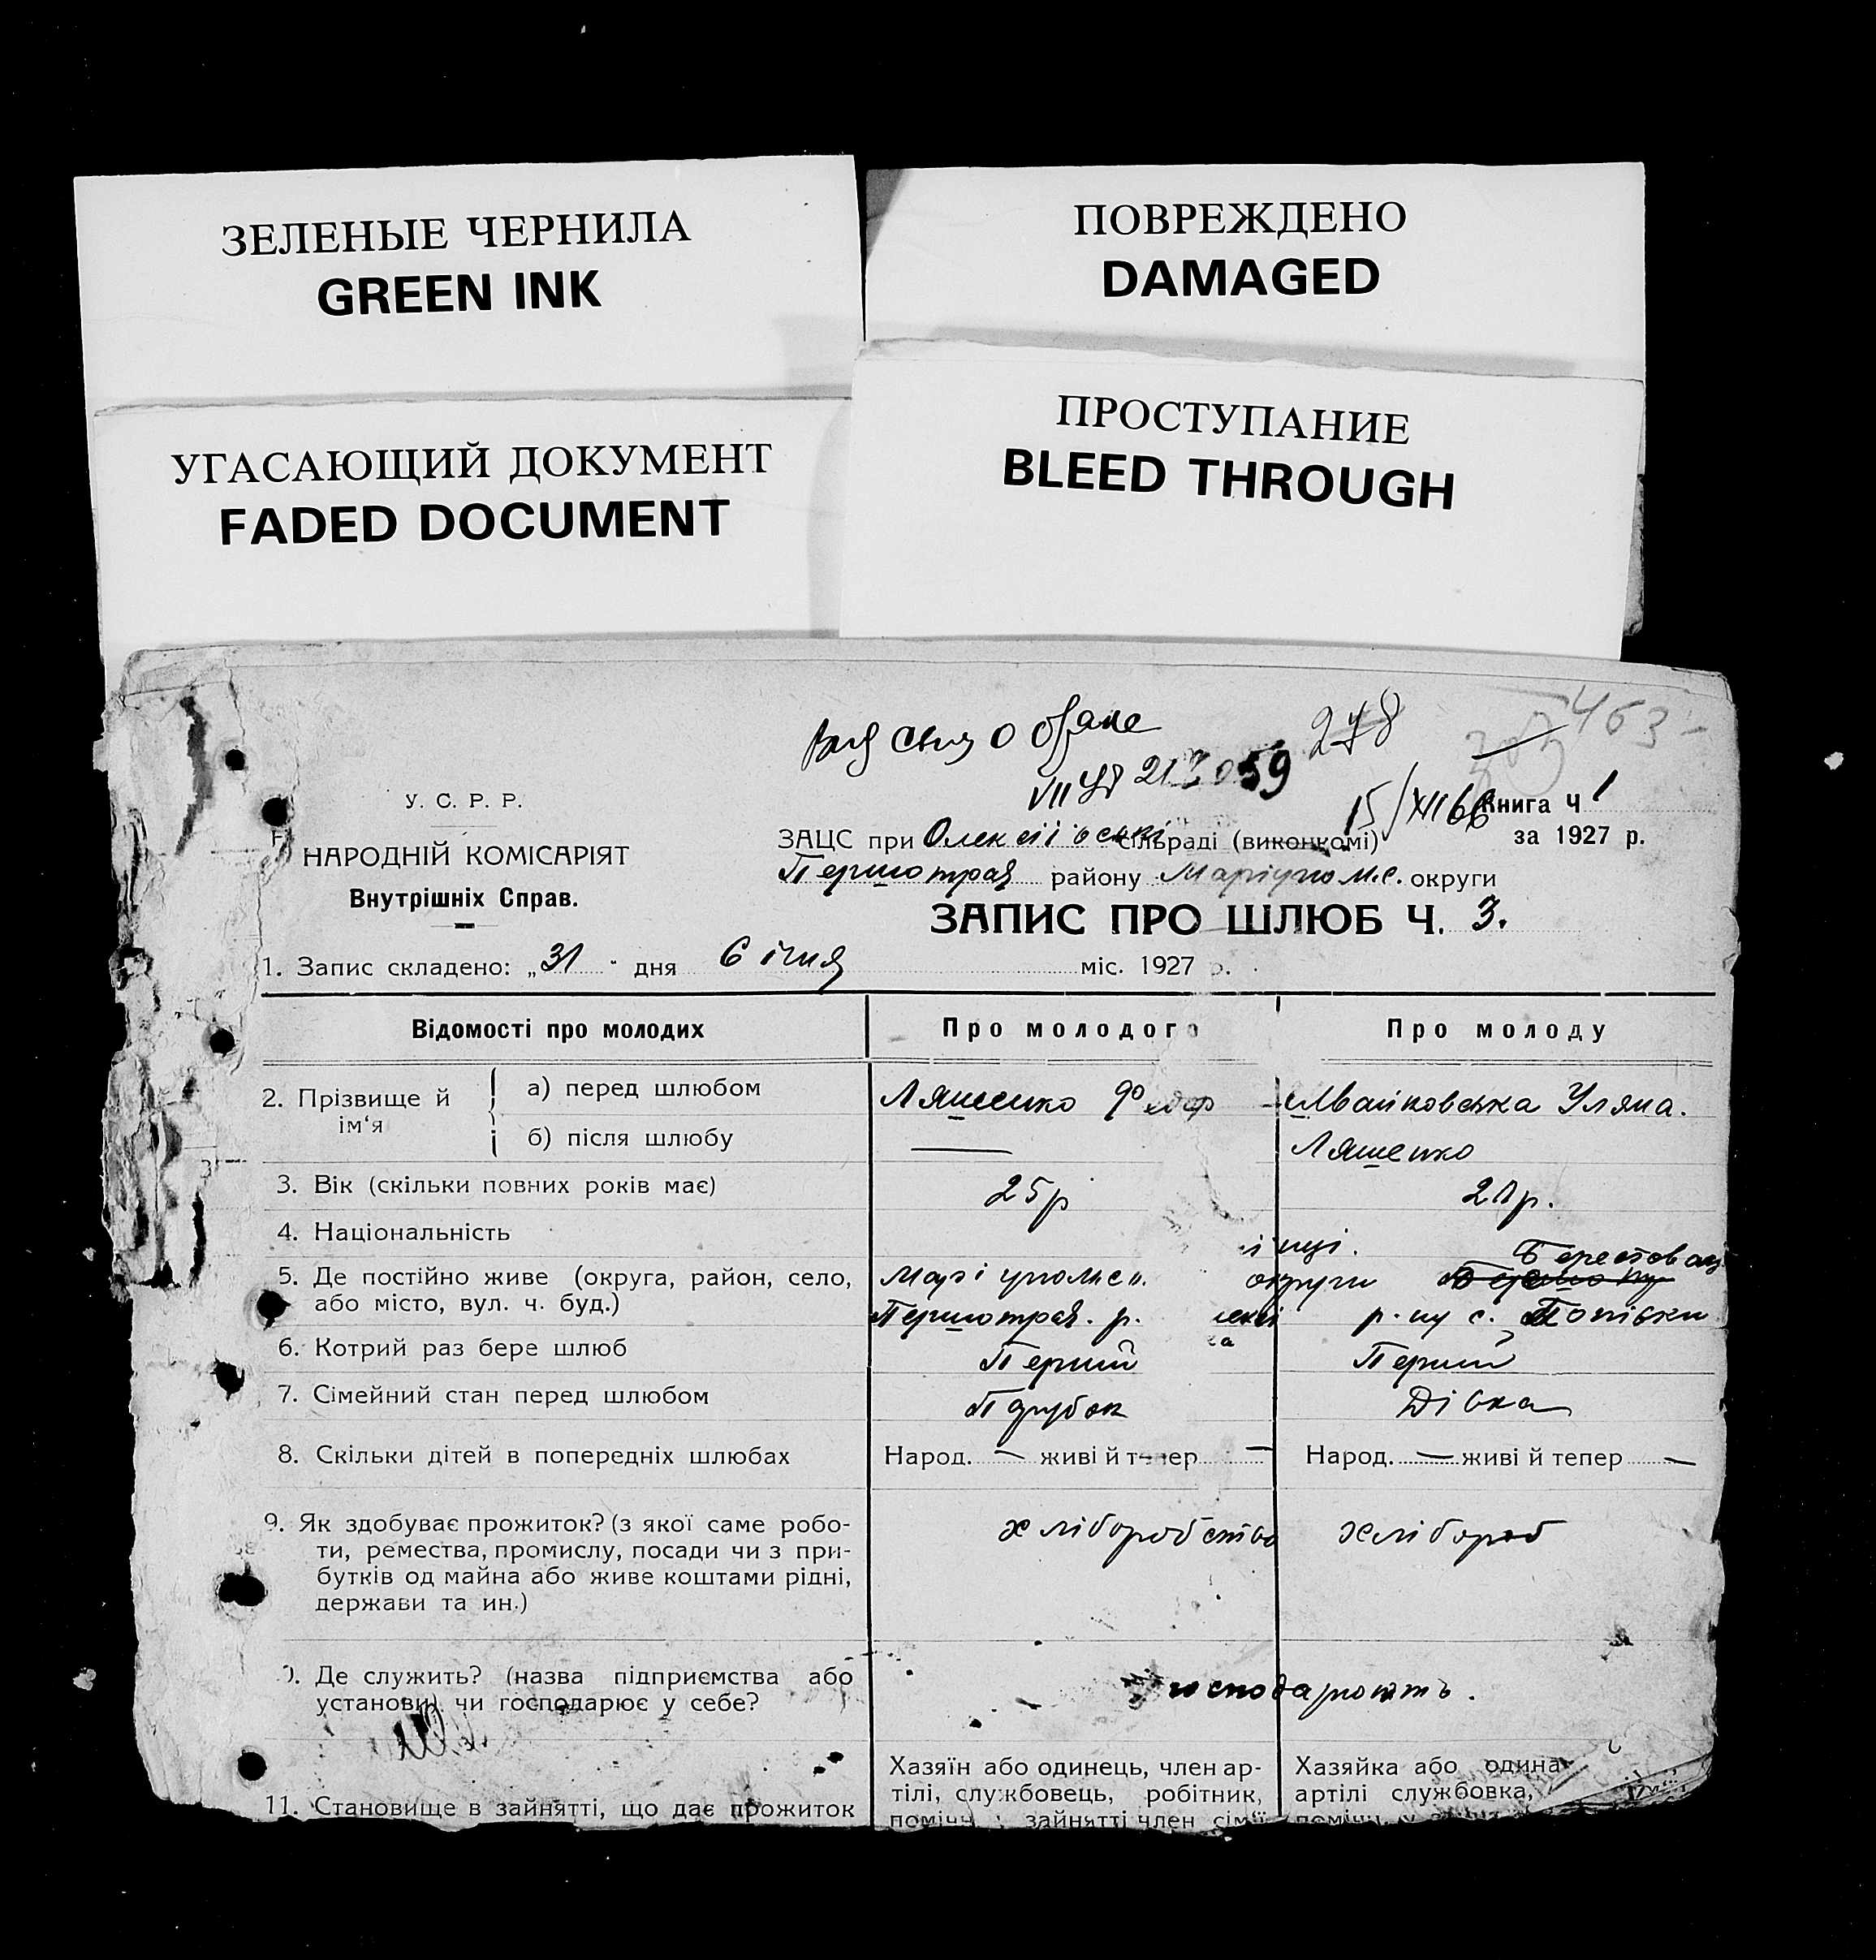 ЗЕЛЕНЫЕ ЧЕРНИЛА
GREEN INK
ПОВРЕЖДЕНО
DAMAGED
УГАСАЮЩИЙ ДОКУМЕНТ
FADED DOCUMENT
ПРОСТУПАНИЕ
BLEED THROUGH
278
15/XII 66
У. С. Р. Р.
НАРОДНІЙ КОМІСАРІЯТ
Внутрішніх Справ.
Книга Ч 1
за 1927 р.
ЗАЦС при сільраді (виконкомі)
Першотрав району Маріупольс. округи
ЗАПИС ПРО ШЛЮБ Ч. 3.
1. Запис складено: „31" дня Січня міс. 1927 р.
Відомості про молодих
Про молодого
Про молоду
2. Прізвище й ім'я
а) перед шлюбом
Ляшенко Федор
Уляна.
б) після шлюбу
—
Ляшенко
3. Вік (скільки повних років має)
25р
21р.
4. Національність
5. Де постійно живе (округа, район, село,
або місто, вул. ч. буд.)
округи
Першотрав. р.
р-ну с. Попівки
6. Котрий раз бере шлюб
Перший
Перший
7. Сімейний стан перед шлюбом
Парубок
Дівка
8. Скільки дітей в попередніх шлюбах
Народ. — живі й тепер —
Народ. — живі й тепер —
9. Як здобуває прожиток? (з якої саме робо-
ти, ремества, промислу, посади чи з при-
бутків од майна або живе коштами рідні,
держави та ин.)
хліборобство
хлібороб
). Де служить? (назва підприємства або
установи) чи господарює у себе?
господарюють.
11. Становище в зайнятті, що дає прожиток
Хазяїн або одинець, член ар-
тілі, службовець, робітник,
зайнятті член сімї
Хазяйка або одина
артілі службовка,